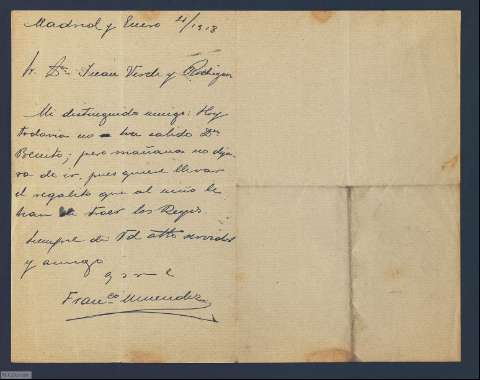 Madrid y Enero 4/1918
Sr. Dn. Juan Verde y Rodriguez
Mi distinguido amigo: Hoy
todavia no ha salido Dn
Benito; pero mañana no deja-
ra de ir, pues quiere llevar
el regalito que al niño le
han de traer los Reyes.
Siempre de Vd atto servidor
y amigo
q s m e
Franco Menendez